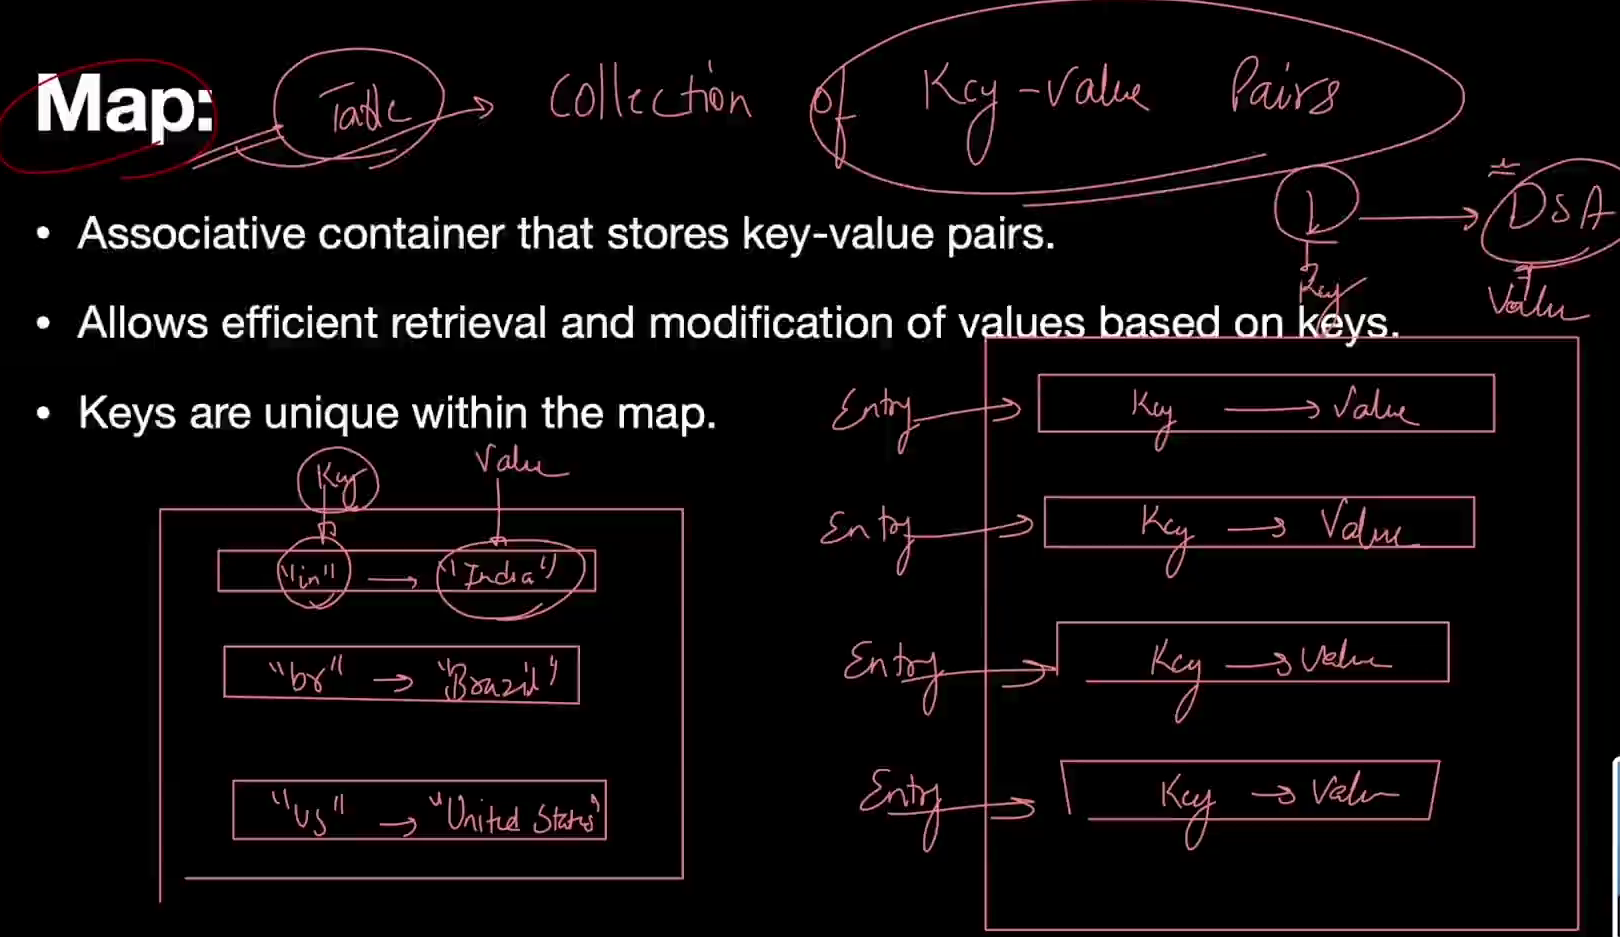 Map: Table → Collection of Key-Value Pairs
D → DSA
Key Value
• Associative container that stores key-value pairs.
• Allows efficient retrieval and modification of values based on keys.
• Keys are unique within the map.
Key Value
"in" → "India"
"br" → "Brazil"
"us" → "United States"
Entry → Key → Value
Entry → Key → Value
Entry → Key → Value
Entry → Key → Value